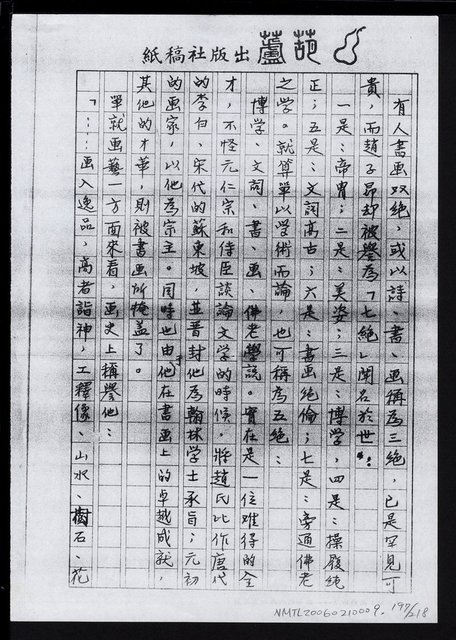 葫蘆出版社稿紙
有人書画双绝，或以詩、書、画稱為三绝，已是罕見可
貴，而趙子昂却被譽為「七絶」聞名於世：
一是：帝胄；二是：美姿；三是：博学，四是：操履纯
正；五是：文詞高古；六是：書画绝倫；七是：旁通佛老
之学。就算單以学術而論，也可稱為五绝：
博学、文詞、書、画、佛老學説。實在是一位难得的全
才，不怪元仁宗和侍臣談論文学的時候，將趙氏比作唐代
的李白、宋代的蘇東坡，並晋封他為翰林学士承旨；元初
的画家，以他為宗主。同時也由于他在書画上的卓越成就，
其他的才華，則被書画所掩盖了。
單就画藝一方面來看，画史上稱譽他：
「⋯⋯画入逸品，高者詣神，工釋像、山水、樹石、花
NMTL20060210009. 197/218